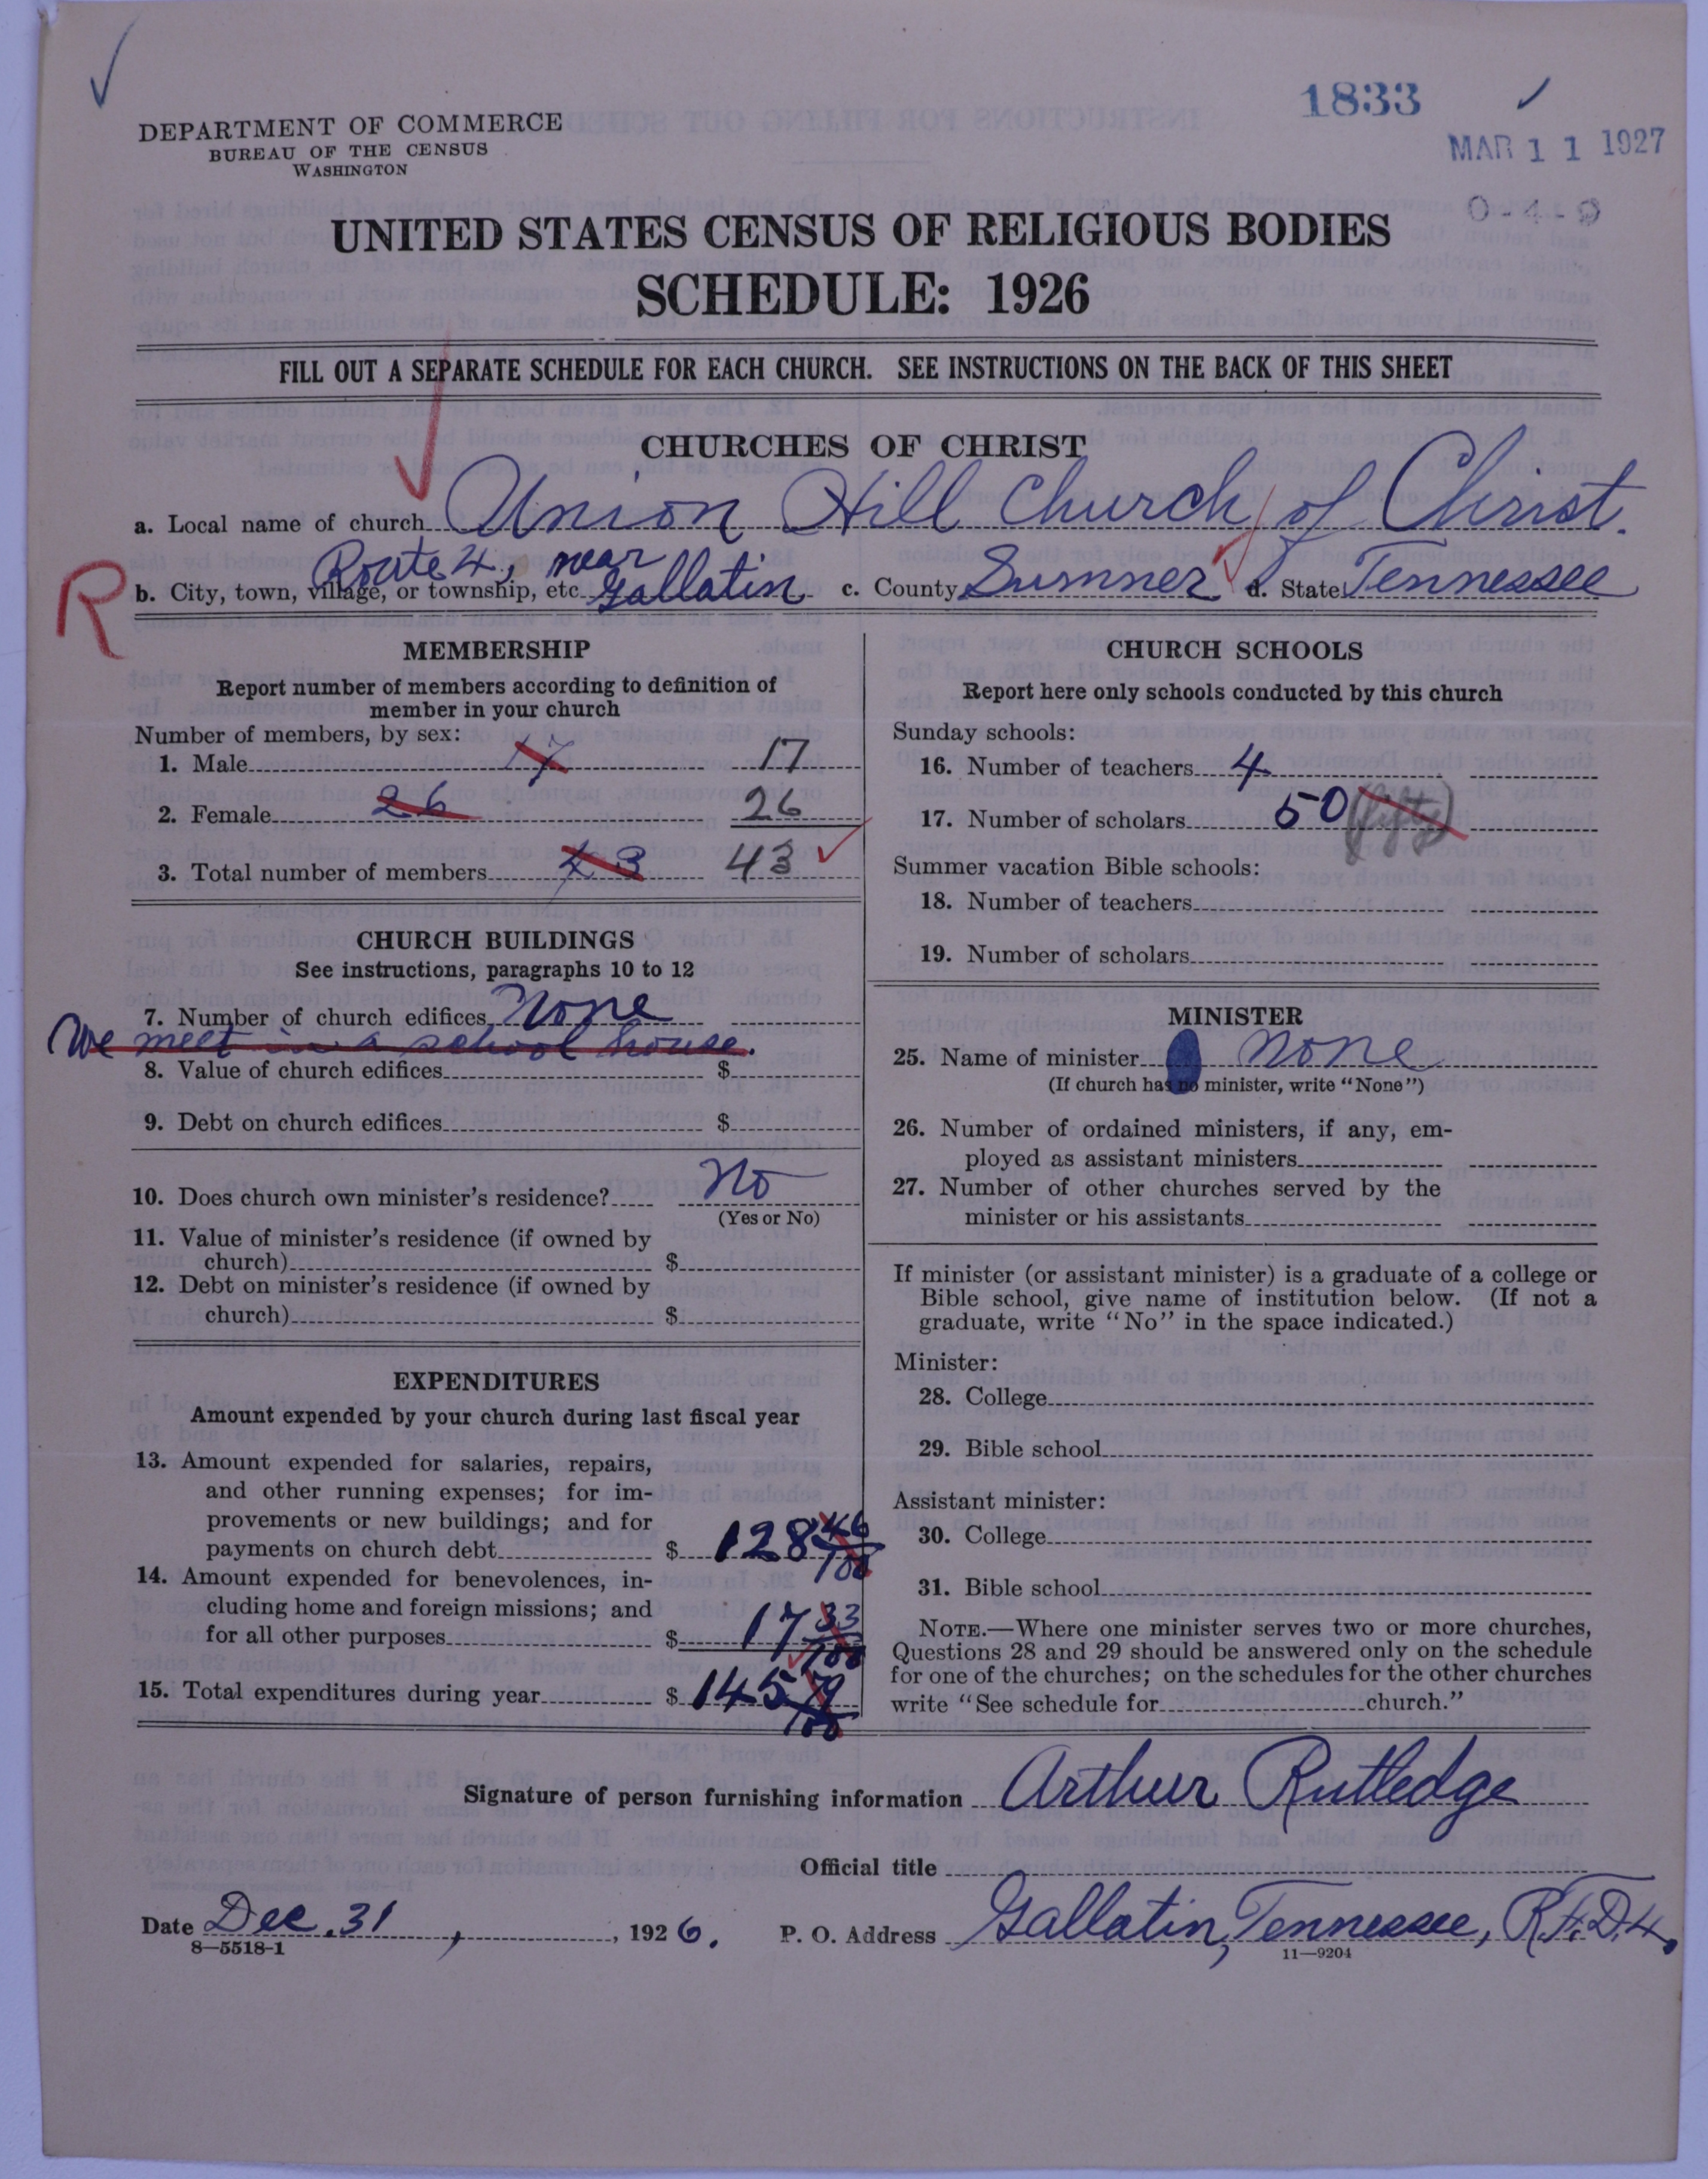 1833
MAR 11 1927
0-4-0
DEPARTMENT OF COMMERCE
BUREAU OF THE CENSUS
WASHINGTON
UNITED STATES CENSUS OF RELIGIOUS BODIES
SCHEDULE: 1926
FILL OUT A SEPARATE SCHEDULE FOR EACH CHURCH. SEE INSTRUCTIONS ON THE BACK OF THIS SHEET
CHURCHES OF CHRIST
a. Local name of church Union Hill Church of Christ.
R
Route 4, near
b. City, town, village, or township, etc. Gallatin c. County Sumner d. State Tennessee
MEMBERSHIP
Report number of members according to definition of
member in your church
Number of members, by sex:
1. Male 17 17
2. Female 26 26
3. Total number of members 43 43
CHURCH BUILDINGS
See instructions, paragraphs 10 to 12
7. Number of church edifices None
We meet in a school house.
8. Value of church edifices $
9. Debt on church edifices $
10. Does church own minister's residence? No
(Yes or No)
11. Value of minister's residence (if owned by
church) $
12. Debt on minister's residence (if owned by
church) $
EXPENDITURES
Amount expended by your church during last fiscal year
13. Amount expended for salaries, repairs,
and other running expenses; for im-
provements or new buildings; and for
payments on church debt $ 128 46/100
14. Amount expended for benevolences, in-
cluding home and foreign missions; and
for all other purposes $ 17 33/100
15. Total expenditures during year $ 145 79/100
CHURCH SCHOOLS
Report here only schools conducted by this church
Sunday schools:
16. Number of teachers 4
17. Number of scholars 50 (fifty)
Summer vacation Bible schools:
18. Number of teachers
19. Number of scholars
MINISTER
25. Name of minister None
(If church has no minister, write "None")
26. Number of ordained ministers, if any, em-
ployed as assistant ministers
27. Number of other churches served by the
minister or his assistants
If minister (or assistant minister) is a graduate of a college or
Bible school, give name of institution below. (If not a
graduate, write "No" in the space indicated.)
Minister:
28. College
29. Bible school
Assistant minister:
30. College
31. Bible school
NOTE.—Where one minister serves two or more churches,
Questions 28 and 29 should be answered only on the schedule
for one of the churches; on the schedules for the other churches
write "See schedule for church."
Signature of person furnishing information Arthur Rutledge
Official title
Date Dec. 31, 1926. P. O. Address Gallatin, Tennessee, R.F.D.4.
8—5518-1
11—9204